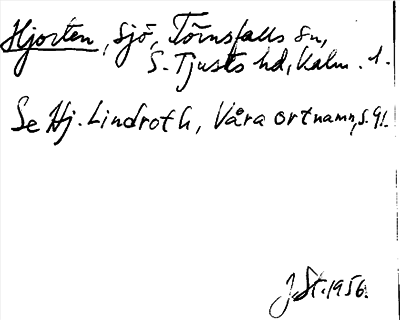 Hjorten, sjö, Törnsfalls sn,
S. Tjusts hd, Kalm. l.
Se Hj. Lindroth, Våra ortnamn, s. 91.
J. St. 1956.